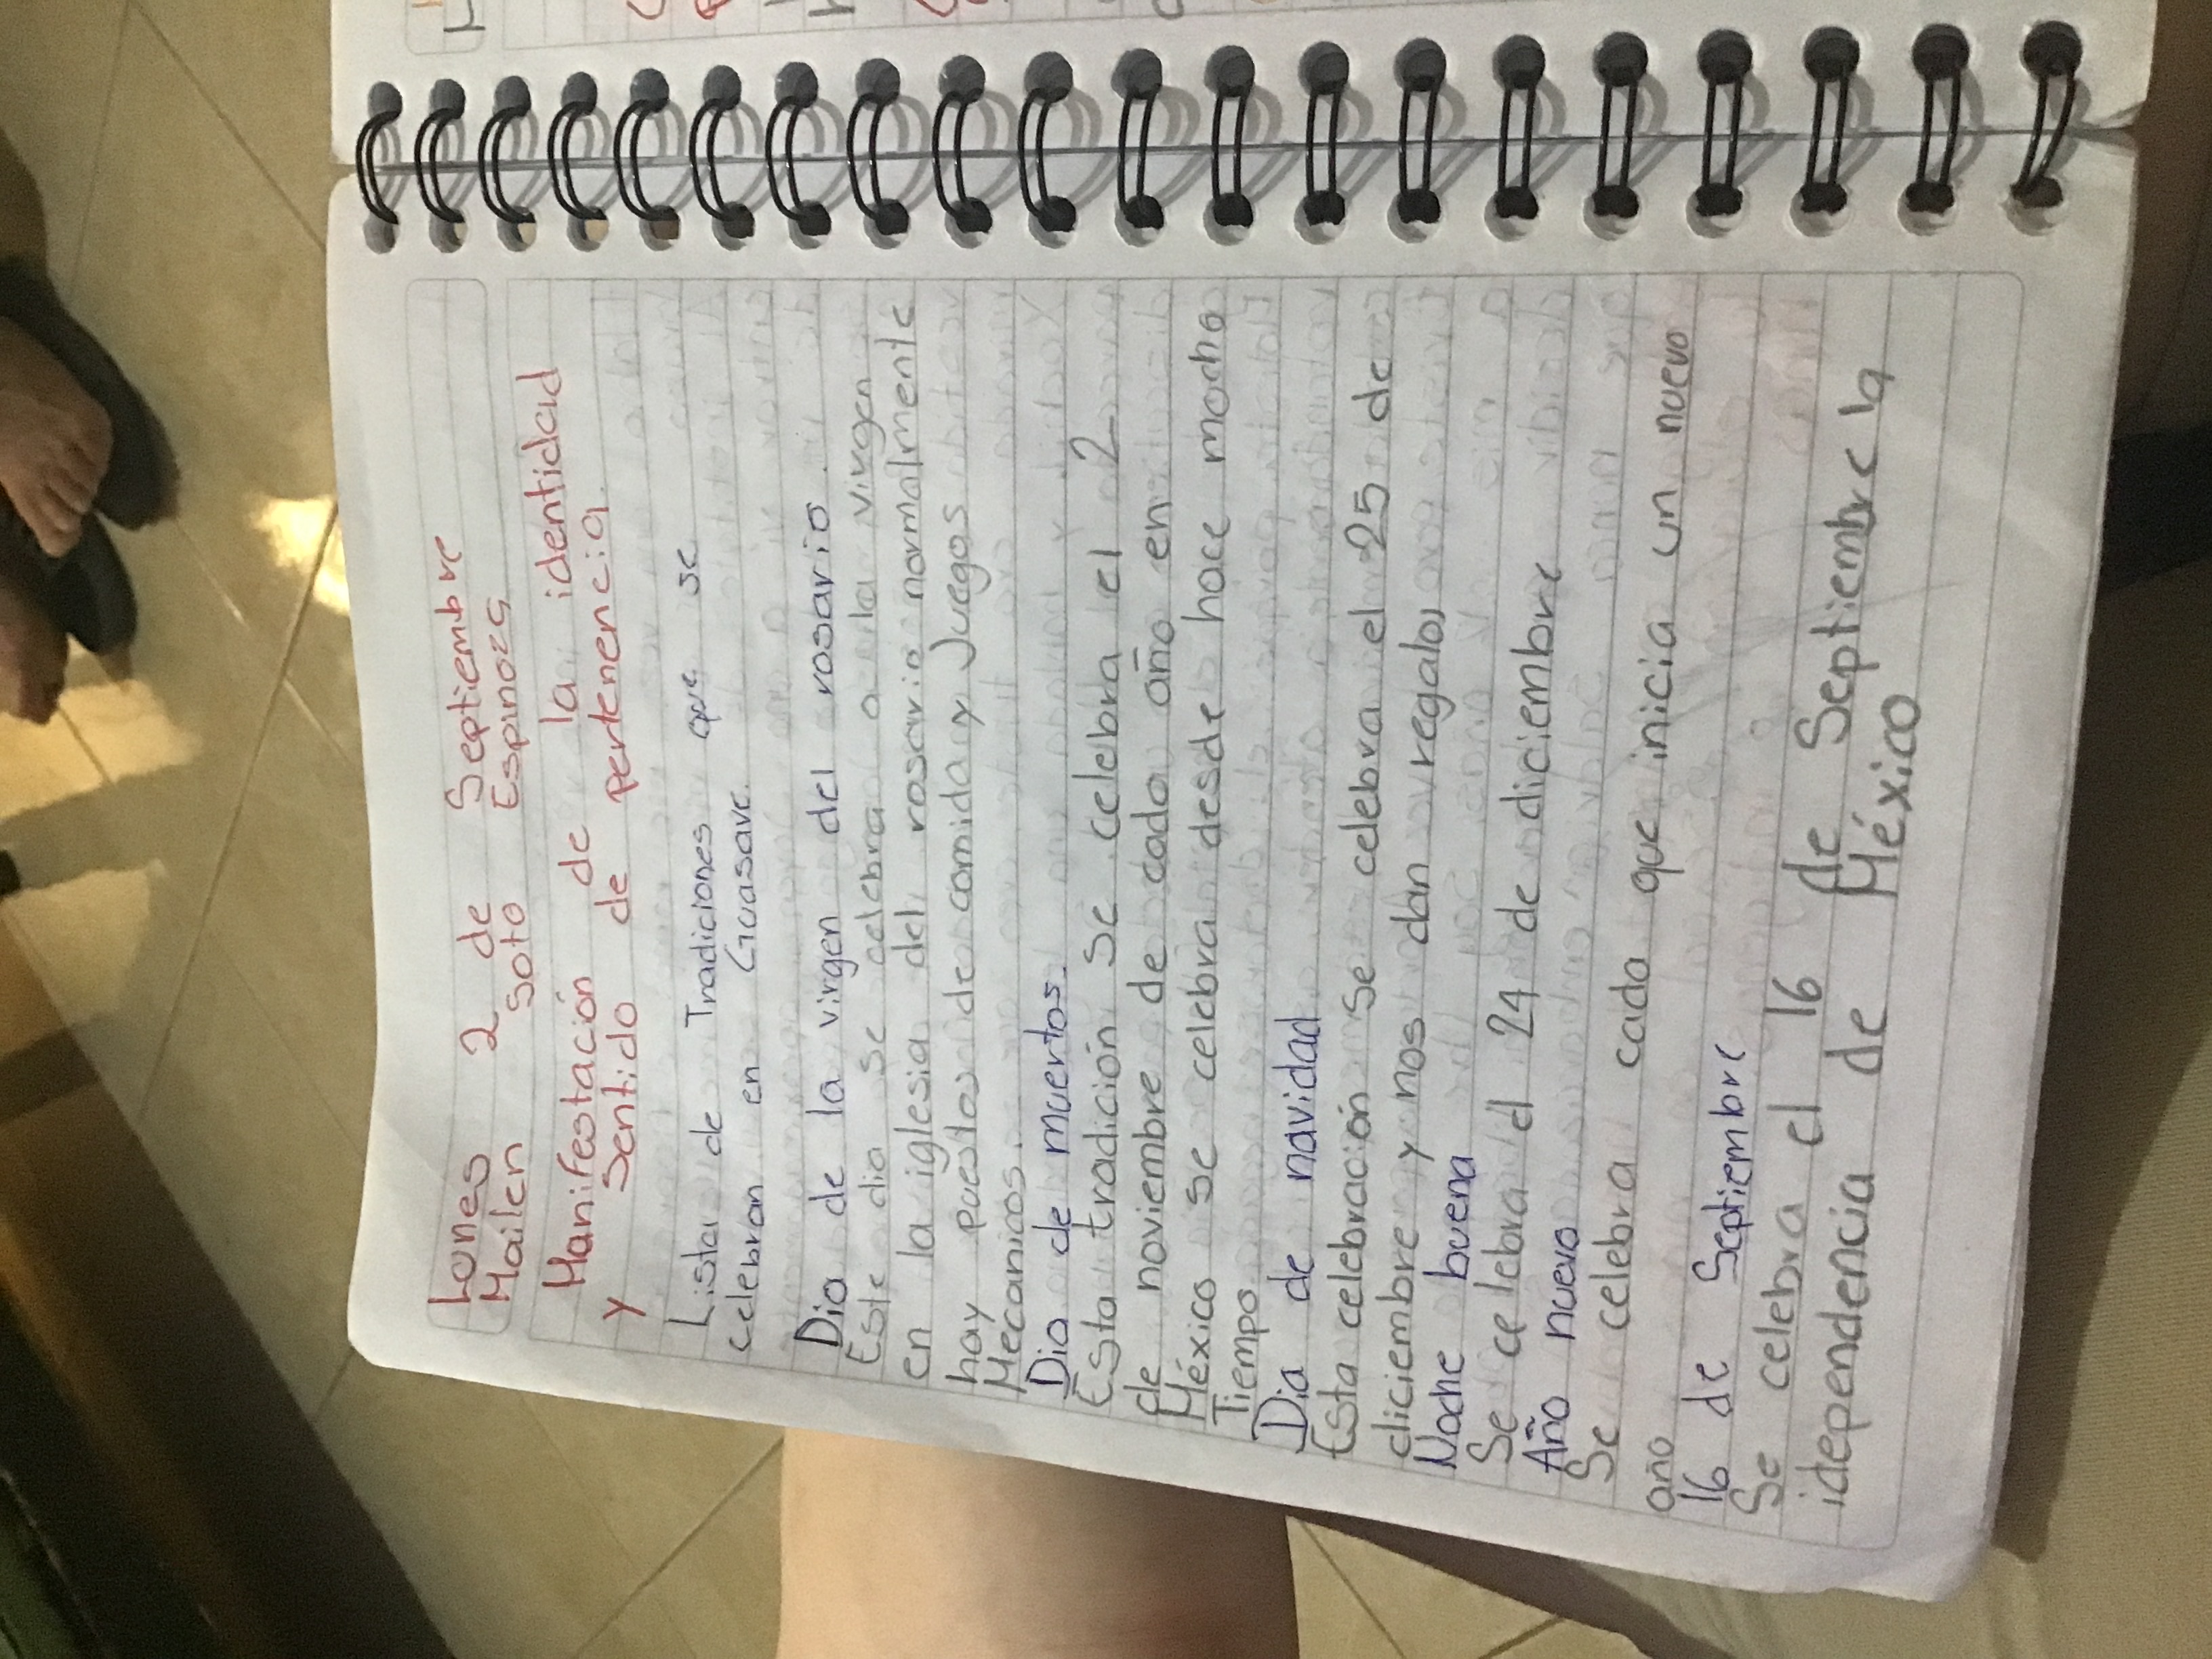 Lunes 2 de Septiembre
Mailen Soto Espinoza
Manifestación de la identidad
y Sentido de pertenencia.
Lista de Tradiciones que se
celebran en Guasave.
Dia de la virgen del rosario.
Este dia se celebra a la virgen
en la iglesia del rosario normalmente
hay puestos de comida y Juegos
Mecanicos.
Dia de muertos.
Esta tradición se celebra el 2
de noviembre de cada año en
México se celebra desde hace mocho
Tiempo
Dia de navidad
Esta celebración se celebra el 25 de
diciembre y nos dan regalos
Noche buena
Se celebra el 24 de diciembre
Año nuevo
Se celebra cada que inicia un nuevo
año
16 de Septiembre
Se celebra el 16 de Septiembre la
idependencia de México